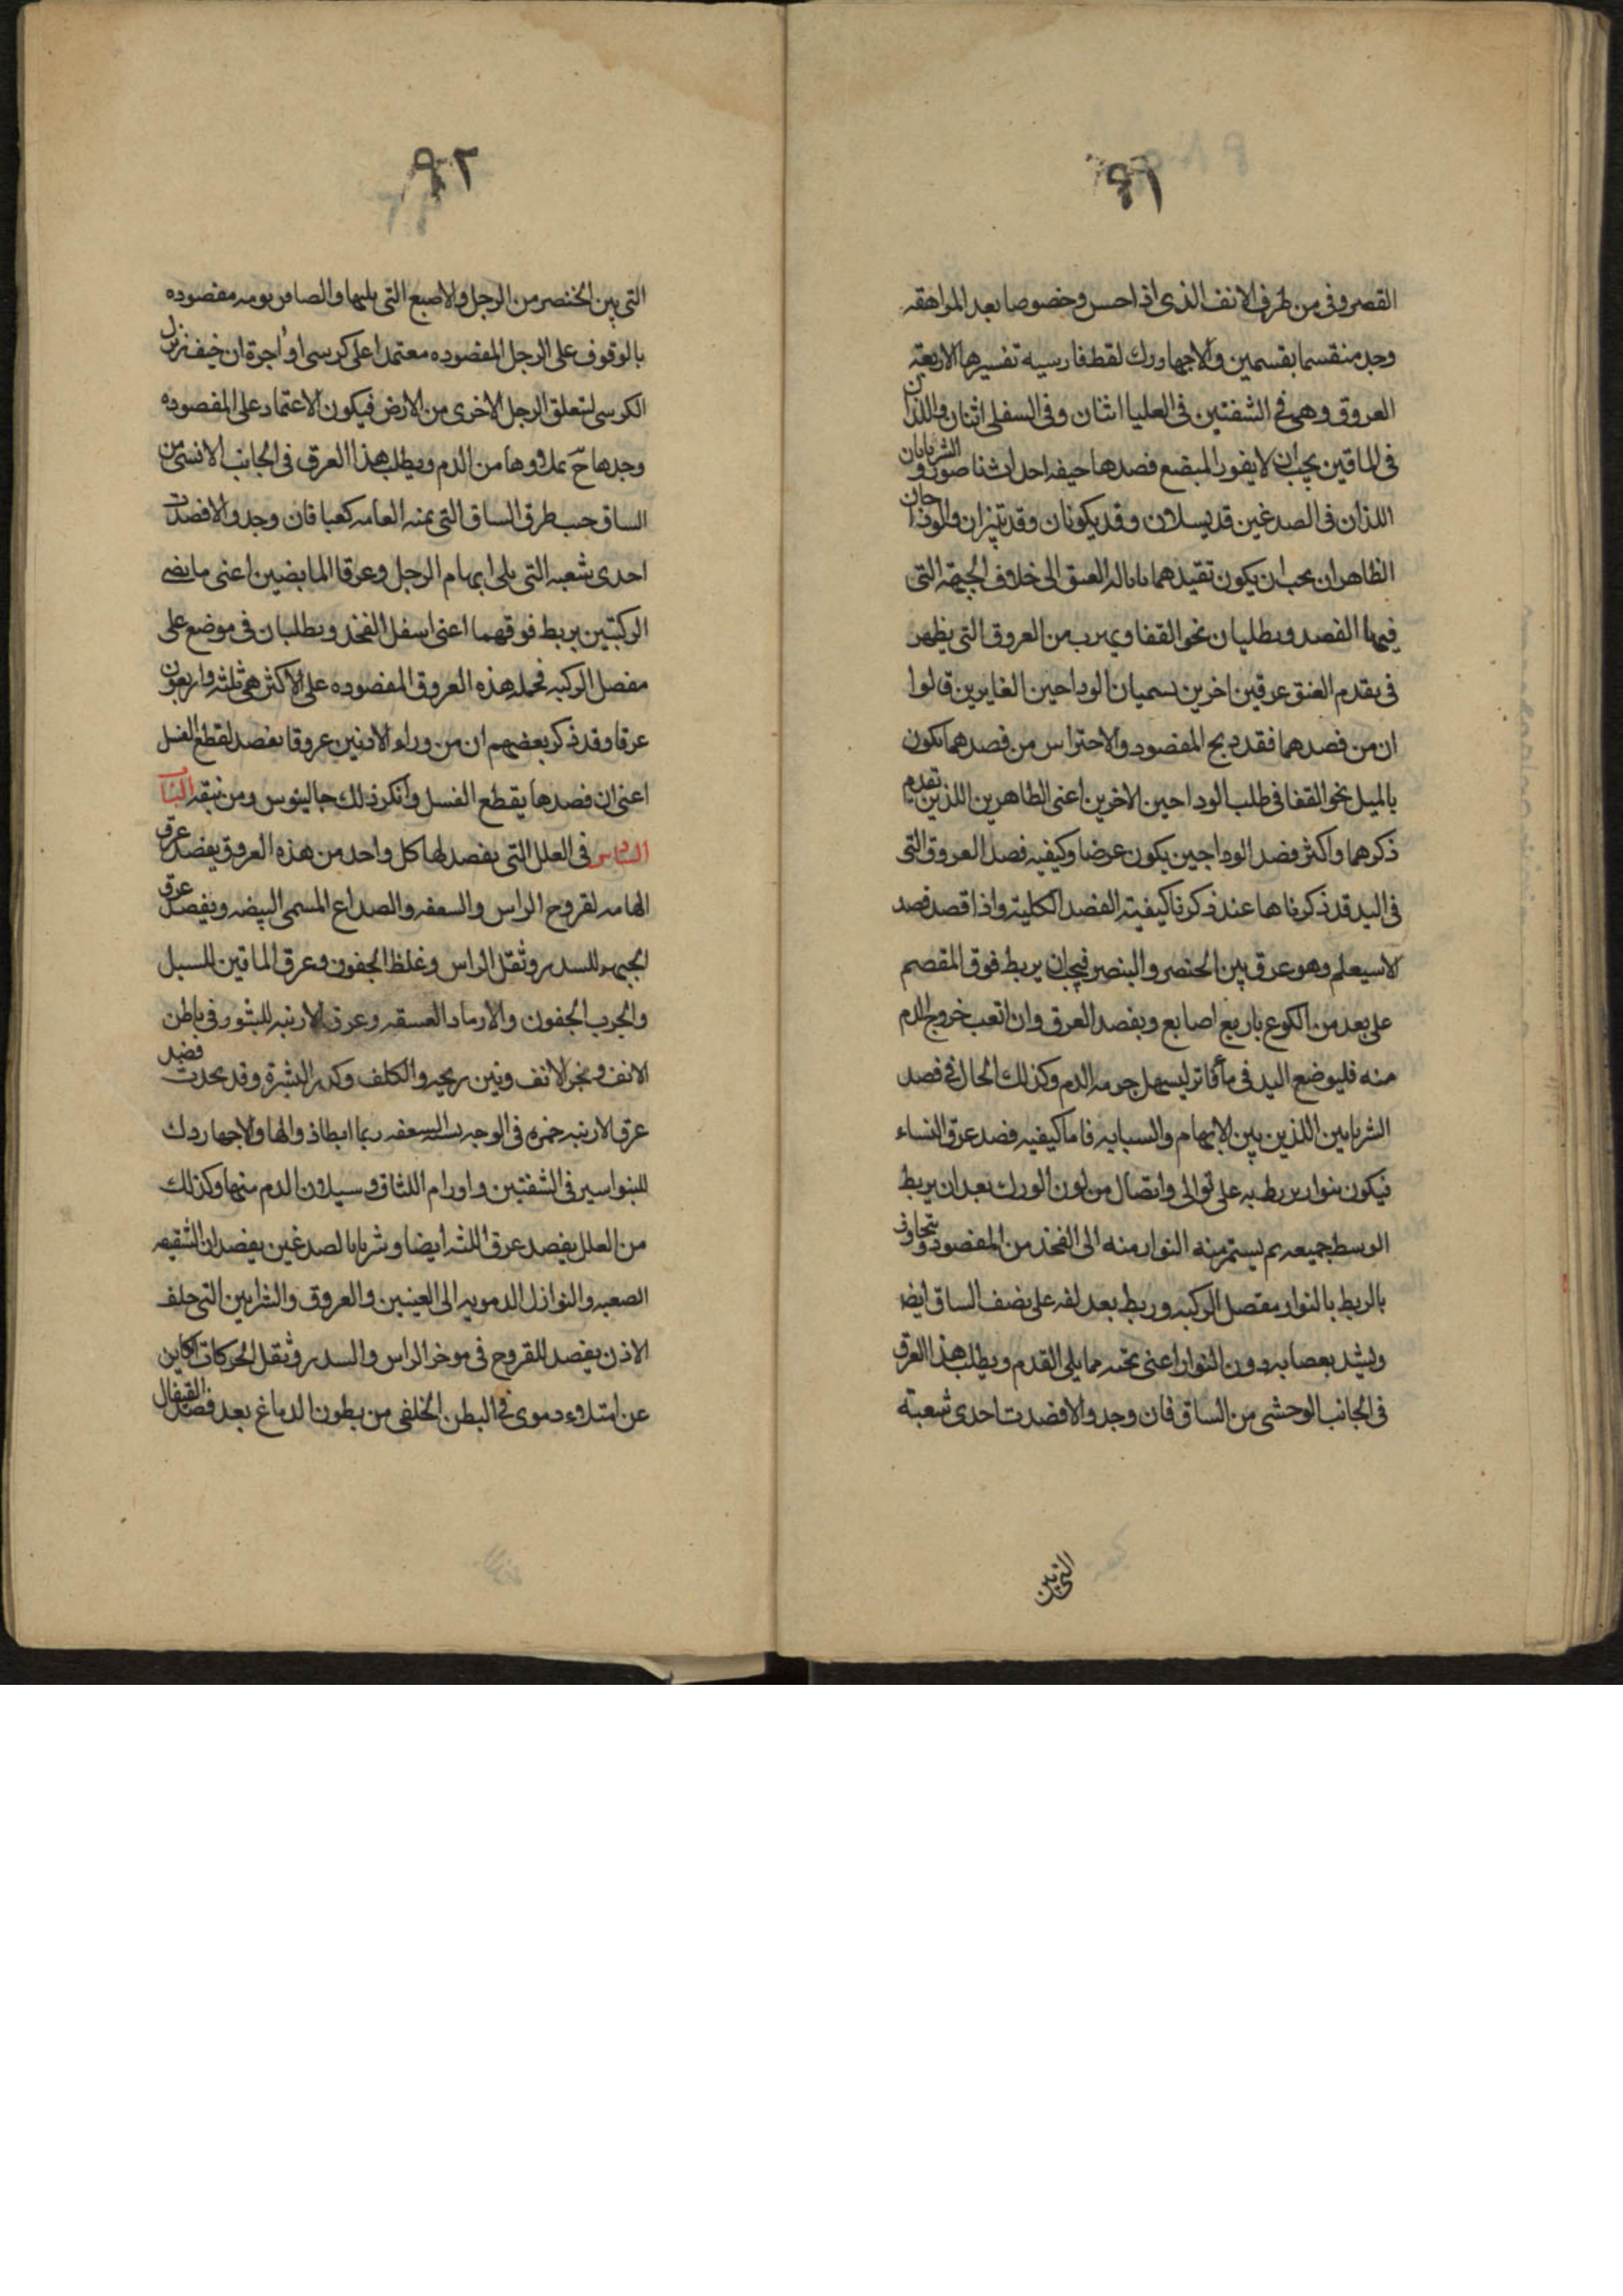 ٩١
القصروفى من طرف الانف الذى اذا احس وخصوصا بعد المراهقه
وجد منقسما بقسمين والاجهارك لفظ فارسيه تفسيرها الاربعة
العروق وهى فى الشفتين فى العليا اثنان وفى السفلى اثنان واللذان
فى الماقين يجب ان لا يغور المبضع فصدها خيفه احداث ناصور والشريانان
اللذان فى الصدغين قد يسلان وقد يكونان وقد تبتران والودجان
الظاهران يجب ان يكون تقيدهما باماله العنق الى خلاف الجهة التى
فيها الفصد ويطلبان نحو القفا ويهرب من العروق التى يظهر
فى مقدم العنق عرقين اخرين يسميان الوداجين الغايرين قالوا
ان من فصدهما فقد ذبح المفصود والاحتراس من فصدهما تكون
بالميل نحو القفا فى طلب الوداجين الاخرين اعنى الظاهرين اللذين تقدم
ذكرهما واكثر فصد الوداجين يكون عرضا وكيفيه فصد العروق التى
فى اليد قد ذكرناها عند ذكرنا كيفية الفصد الكلية واذا قصد فصد
الاسيلم وهو عرق بين الخنصر والبنصر فيجب ان يربط فوق المعصم
على بعد من الكوع باربع اصابع ويفصد العرق وان اتعب خروج الدم
منه فليوضع اليد فى ماء فاتر ليسهل جريه الدم وكذلك الحال فى فصد
الشريانين اللذين بين الابهام والسبابه فاما كيفيه فصد عرق النساء
فيكون بنوار يربط به على توالى واتصال من لدن الورك بعد ان يربط
الوسط جميعه ثم يستمر منه النوار منه الى الفخذ من المفصود ويتجاوز
بالربط بالنوار مفصل الركبه وربط بعد لفه على نصف الساق ايضا
ويشد بعصابه دون النوار اعنى تحته مما يلى القدم ويطلب هذا العرق
فى الجانب الوحشى من الساق فان وجد والا فصدت احدى شعبتة
التى بين
٩٢
التى بين الخنصر من الرجل والاصبع التى يليها والصافن يومر مفصوده
بالوقوف على الرجل المفصوده معتمدا على كرسى او اجرة ان خيف نزل
الكرسى لتعلق الرجل الاخرى من الارض فيكون الاعتماد على المفصوده
وجدها ح مملوها من الدم ويطلب هذا العرق فى الجانب الانسى من
الساق جنب طرف الساق التى يمنه العامه كعبا فان وجد والا فصدت
احدى شعبه التى يلى ابهام الرجل وعرقا المابضين اعنى مابضى
الركبتين يربط فوقهما اعنى اسفل الفخذ ويطلبان فى موضع على
مفصل الركبه فجمله هذه العروق المفصوده على الاكثر هى ثلثه واربعون
عرقا وقد ذكر بعضهم ان من وراء الاذنين عروقا يفصد لقطع النسل
اعنى ان فصدها يقطع النسل وانكر ذلك جالينوس ومن تبعه الباب
السادس فى العلل التى يفصد لها كل واحد من هذه العروق يفصد عرق
الهامه لقروح الراس والسعفه والصداع المسمى البيضه ويفصد عرق
الجبهه للسدر وثقل الراس وغلظ الجفون وعرق الماقين للسبل
والجرب الجفون والارماد العسقه وعرق الارنبه للبثور فى باطن
الانف وبخر الانف ونتن ريحه والكلف وكدر البشرة وقد يحدث فصد
عرق الارنبه حمره فى الوجه السعفه ربما ابطا ذوالها والاجهاردك
للبواسير فى الشفتين واورام اللثاق وسيلان الدم منها وكذلك
من العلل يفصد عرق اللثه ايضا وشريانا لصدغين يفصدان الشقيقه
الصعبه والنوازل الدمويه الى العينين والعروق والشرايين التى خلف
الاذن يفصد للقروح فى موخر الراس والسدر وثقل الحركات الكاين
عن امتلاء دموى فى البطن الخلفى من بطون الدماغ بعد فصد القيفال